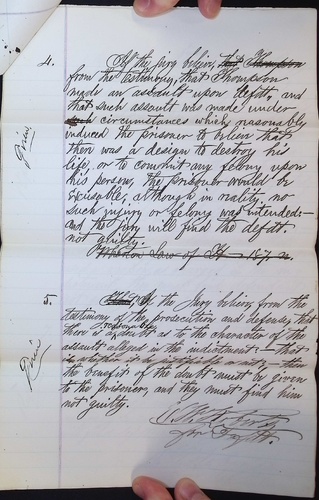 4. If the jury believe, that Thompson
from the testimony, that Thompson
made an assault upon Defdt, and
that such assault was made under
such circumstances which reasonably
induced the prisoner to believe that
there was a design to destroy his
life, or to commit any felony upon
his person, the prisoner would be
excusable, although in reality, no
such injury or felony was intended—
and the jury will find the defdt
not guilty.
Wharton Law of
Given
5. If the Jury believe, from the
testimony of the prosecution and defense, that
there is a reasonable doubt as to the character of the
assault alleged in the indictment:— that
is whether it be felonious or not, then
the benefit of the doubt must be given
to the prisoner, and they must find him
not guilty.
Given
for Defdt.